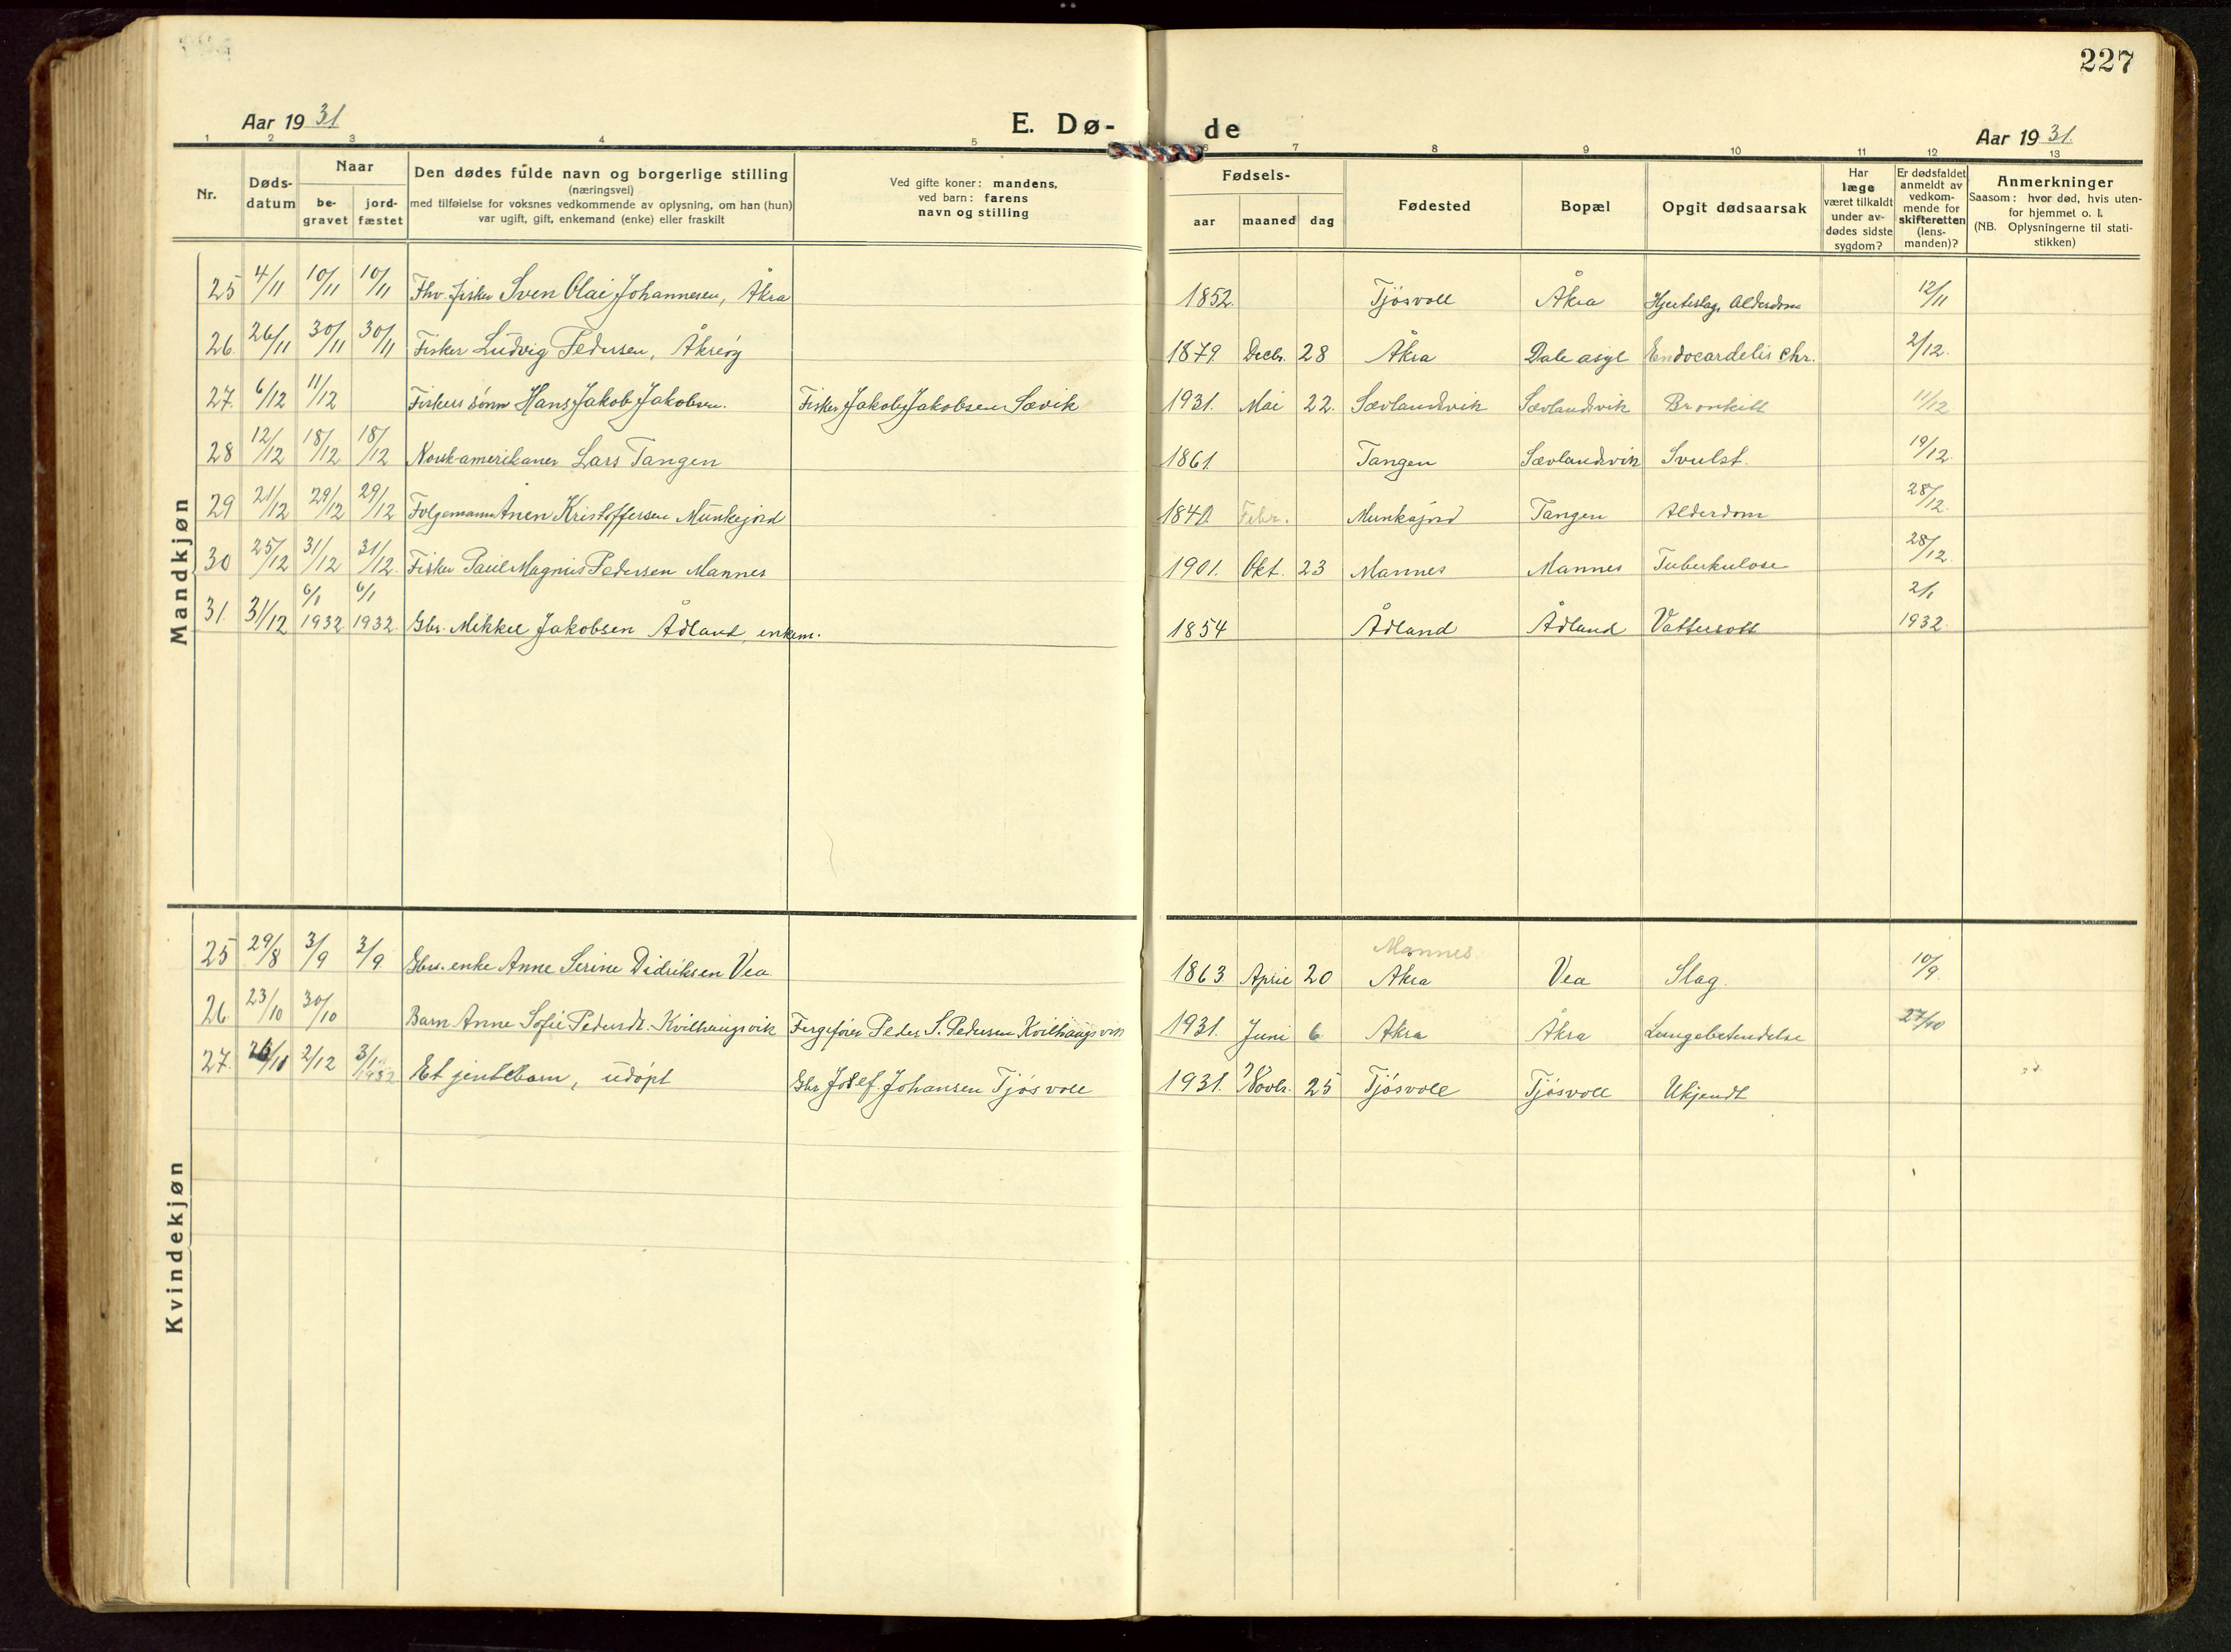 227
Aar 19 31 E. Dø- de Aar 19 31.
1 2 3 4 5 6 7 8 9 10 11 12 13
Nr. Døds-datum Naar be-gravet jord-fæstet Den dødes fulde navn og borgerlige stilling (næringsvei) med tilføielse for voksnes vedkommende av oplysning, om han (hun) var ugift, gift, enkemand (enke) eller fraskilt Ved gifte koner: mandens, ved barn: farens navn og stilling Fødsels- aar maaned dag Fødested Bopæl Opgit dødsaarsak Har læge været tilkaldt under av-dødes sidste sygdom? Er dødsfaldet anmeldt av vedkom-mende for skifteretten (lens-manden)? Anmerkninger Saasom: hvor død, hvis uten-for hjemmet o. l. (NB. Oplysningerne til stati-stikken)
Mandkjøn
25 4/11 10/11 10/11 Fhv. fisker Sven Olai Johannesen, Åkra 1852. Tjøsvoll Åkra Hjerteslag, Alderdom 12/11
26. 26/11 30/11 30/11 Fisker Ludvig Pedersen, Åkreøy 1879 Decbr. 28 Åkra Dale asyl Endocardelis chr. 2/12.
27. 6/12 11/12 Fiskers sønn Hans Jakob Jakobsen. Fisker Jakob Jakobsen Sævik 1931. Mai 22. Sævlandsvik Sævlandsvik Bronkitt 11/12
28 12/12 18/12 18/12 Norskamerikaner Lars Tangen 1861. Tangen Sævlandsvik Svulst. 19/12.
29 21/12 29/12 29/12 Folgemann Anen Kristoffersen Munkejord 1840 Febr. Munkajord Tangen Alderdom 28/12.
30 25/12 31/12 31/12. Fisker Paul Magnus Pedersen Mannes 1901. Okt. 23 Mannes Mannes Tuberkulose 28/12.
31. 31/12 6/1 1932 6/1 1932. Gbr. Mikkel Jakobsen Ådland, enkem. 1854 Ådland Ådland Vattersott 2/1 1932.
Kvindekjøn
25 29/8 3/9 3/9. Gbr. enke Anne Serine Didriksen Vea. 1863 April 20 Mannes. Akra Vea Slag. 10/9.
26. 23/10 30/10 Barn Anne Sofie Pedersdt. Kvilhaugsvik Fergefører Peder S. Pedersen Kvilhaugsvik 1931. Juni 6. Akra Åkra Lungebetendelse 27/10
27. 26/11 2/12 3/1 1932 Et jentebarn, udøpt Gbr. Josef Johansen Tjøsvoll 1931. Novbr. 25 Tjøsvoll Tjøsvoll Ukjendt